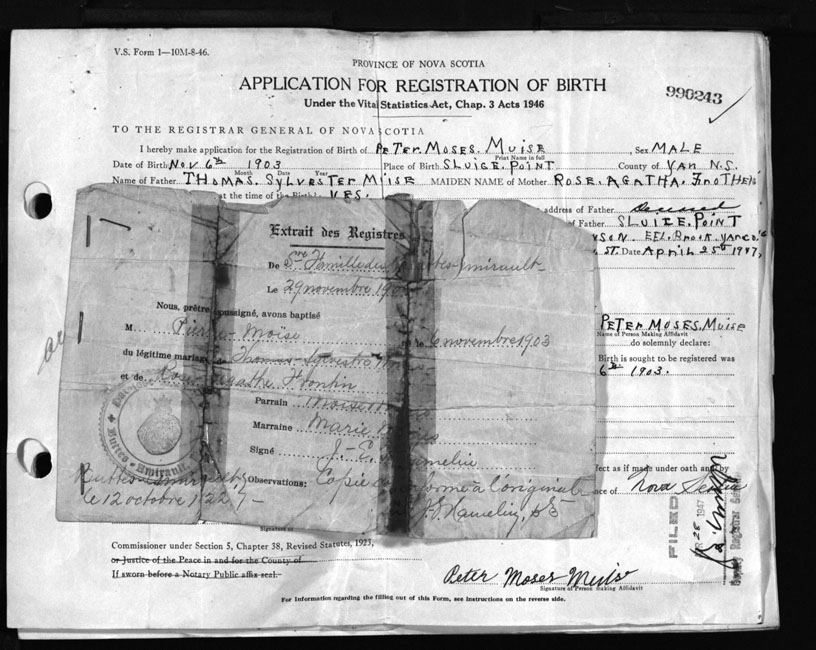 V.S. Form 1—10M-8-46.
PROVINCE OF NOVA SCOTIA
APPLICATION FOR REGISTRATION OF BIRTH
990243
Under the Vital Statistics Act, Chap. 3 Acts 1946
TO THE REGISTRAR GENERAL OF NOVA SCOTIA
I hereby make application for the Registration of Birth of PETER. MOSES. MUISE, Sex MALE
Print Name in full
Date of Birth Nov 6th 1903 Place of Birth SLUICE. POINT County of YAR N.S.
Month Date Year
Name of Father THOMAS. SYLVESTER MUISE MAIDEN NAME of Mother ROSE. AGATHA.
at the time of the YES. address of Father Deceased
of Father SLUICE. POINT
EEL. BROOK. YAR CO.
ST. Date APRIL 25th 1947,
Extrait des Registres
De Ste
Le 29 novembre
Nous, prêtre soussigné, avons baptisé
M. Pierre Moïse le 6 novembre 1903
du légitime mariage de Thomas Sylvestre
et de Rose Agathe Frontin
Parrain Moïse
Marraine Marie
Signé J. E. Hamelin
Observations: Copie conforme à l'original
le 12 octobre 1922
Hamelin, ptre
PETER MOSES. MUISE
Name of Person Making Affidavit
do solemnly declare:
Birth is sought to be registered was
6th 1903.
ject as if made under oath and by
nce of Nova Scotia
FILED
28 1947
Deputy Registrar General
Commissioner under Section 5, Chapter 38, Revised Statutes, 1923,
or Justice of the Peace in and for the County of
If sworn before a Notary Public affix seal.
Peter Moses Muise
Signature of Person Making Affidavit
For Information regarding the filling out of this Form, see instructions on the reverse side.